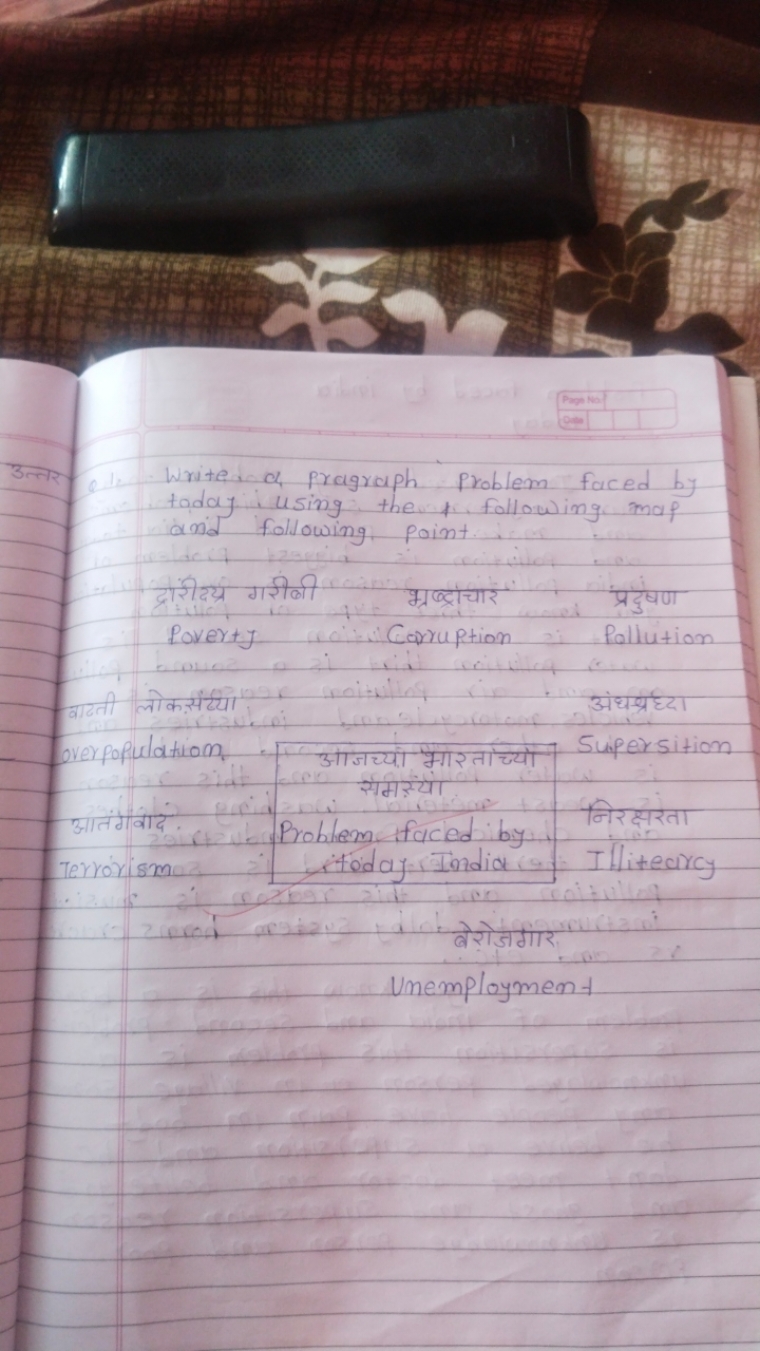 Page No.
Date
उत्तर
Q 1. Write a pragraph problem faced by
today using the following map
and following point.
दारीद्रय गरीबी भ्रष्ट्राचार प्रदुषण
Poverty Corruption Pollution
वाढती लोकसंख्या अंधश्रध्दा
overpopulation Supersition
आजच्या भारताच्या
समस्या
आतंगवाद निरक्षरता
Problem faced by
today India
Terrorism Illitearcy
बेरोजगार
Unemployment